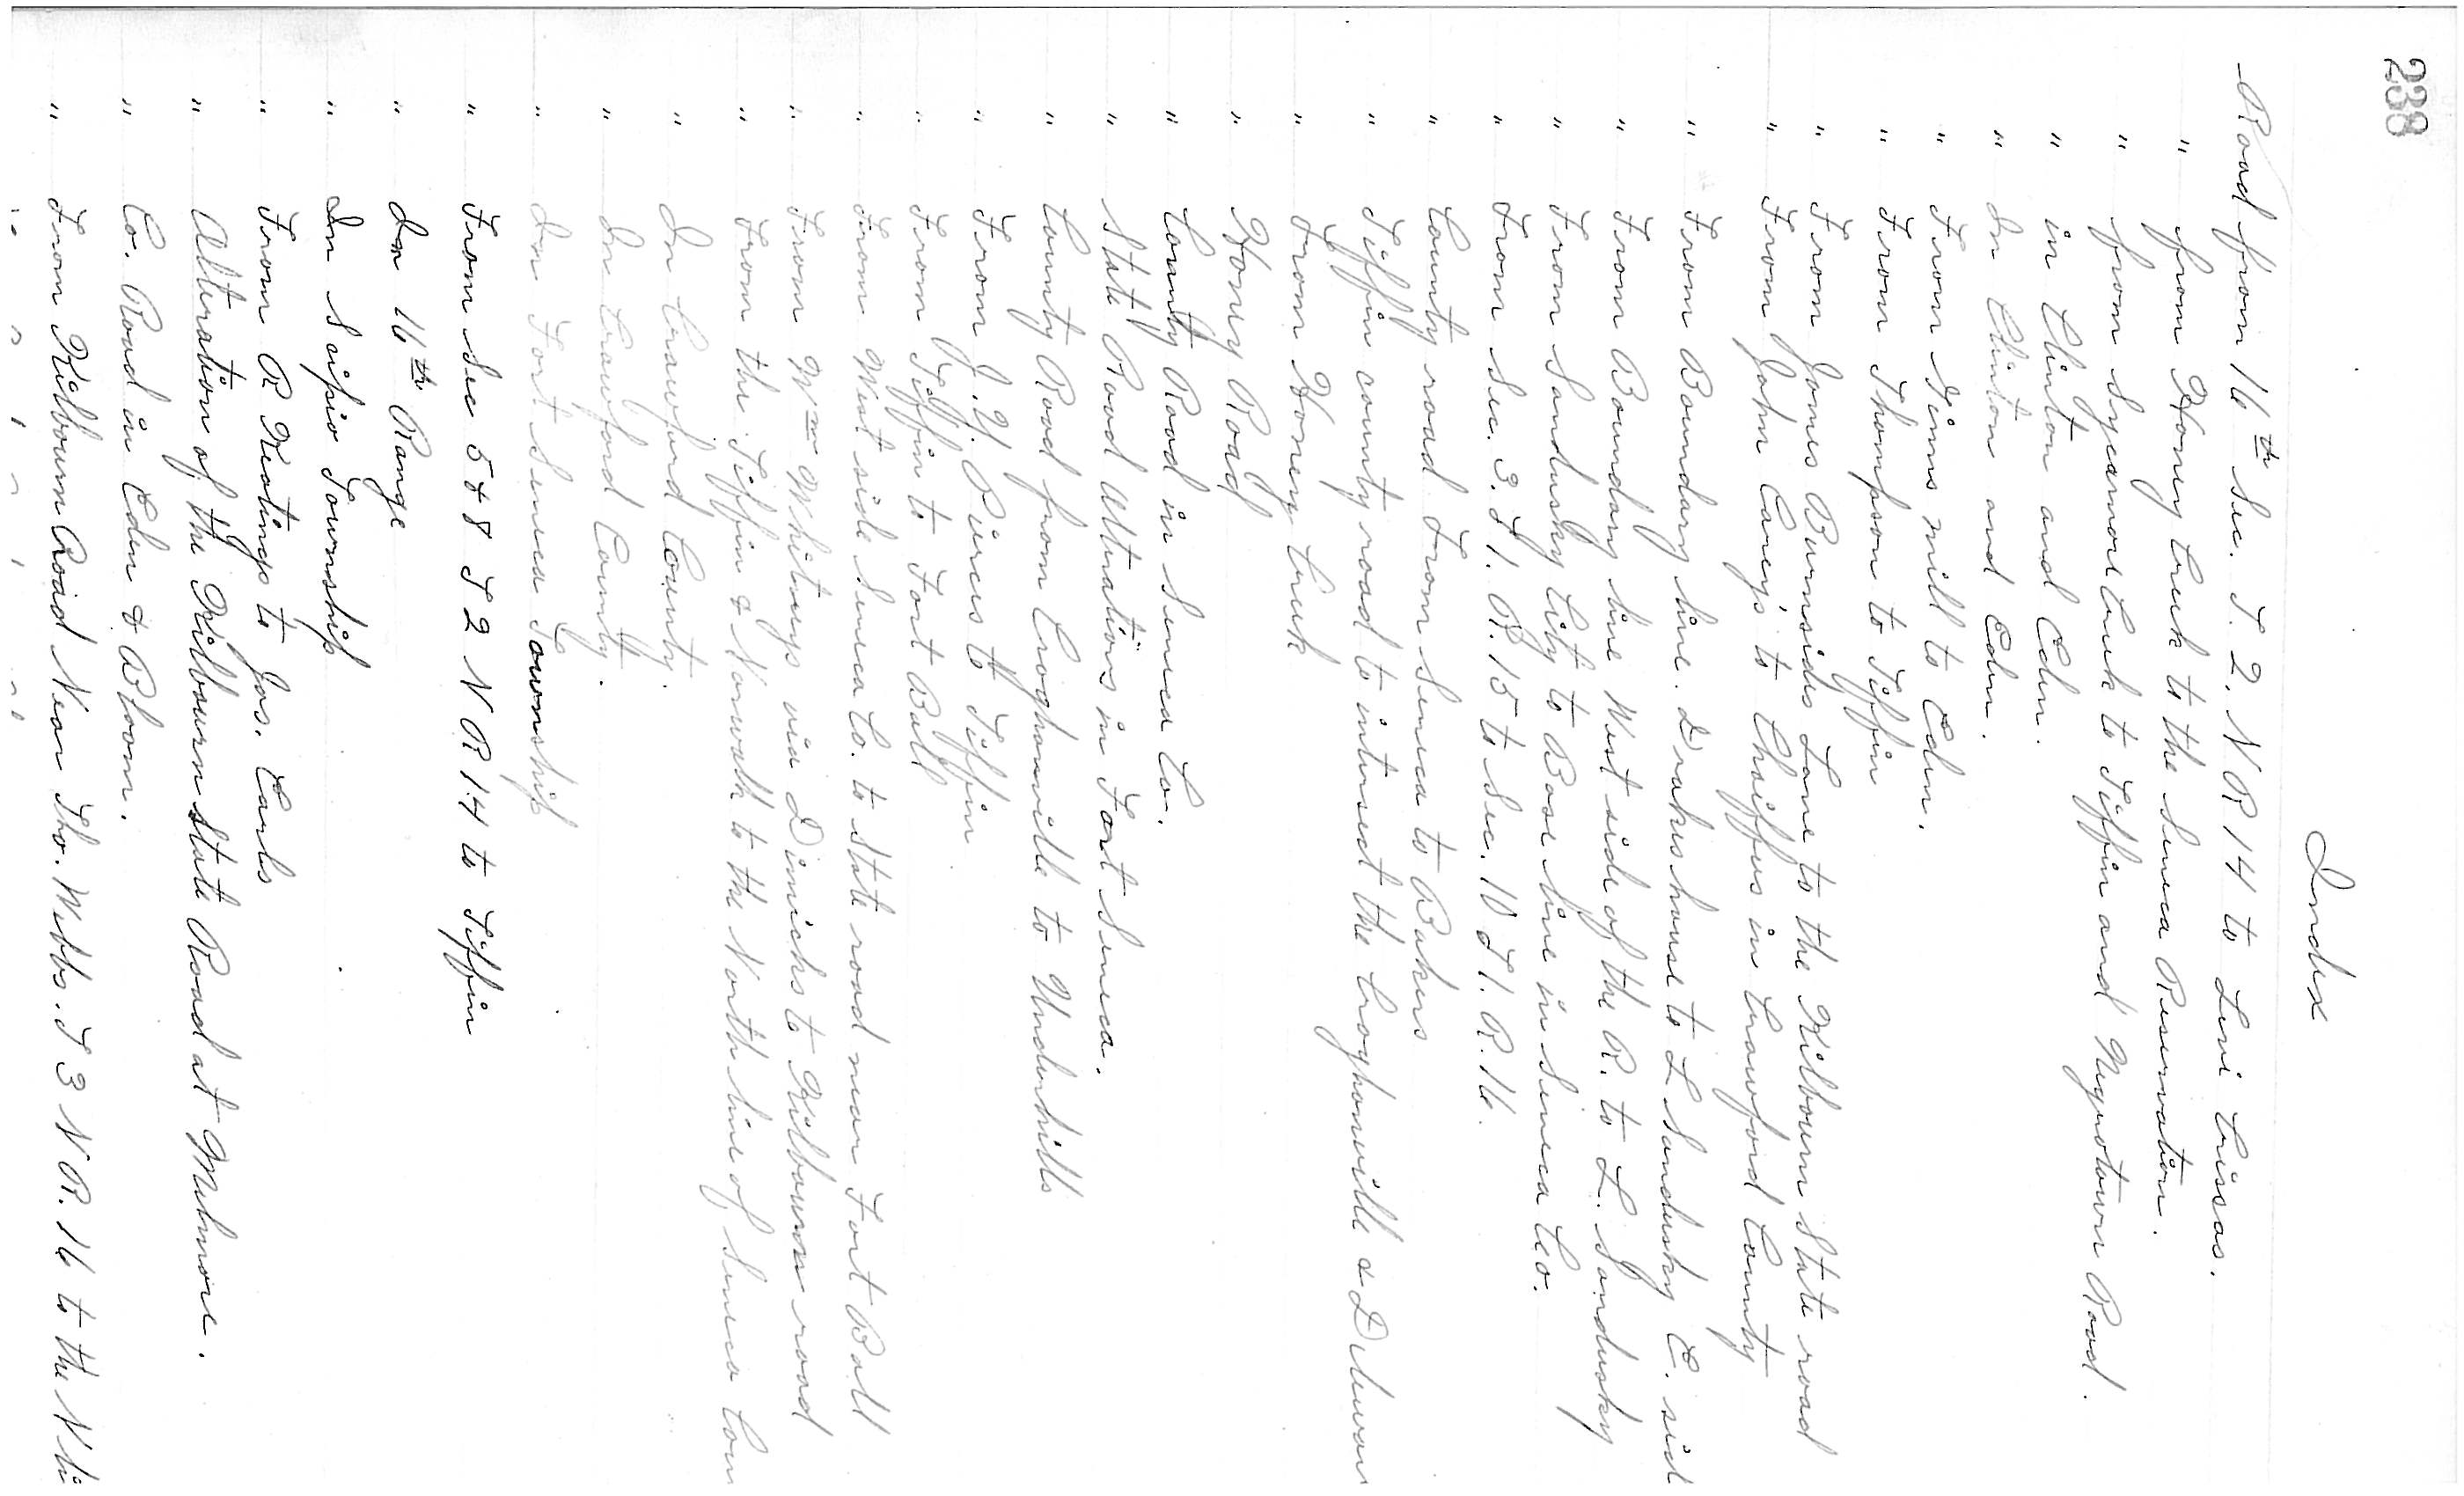 238
Index
Road from 16th Sec. T. 2. N R 14 to Levi Crisas.
" from Honey Creek to the Seneca Reservation.
" from Sycamore Creek to Tiffin and Negrotown Road.
" in Clinton and Eden.
" In Clinton and Eden.
" From Sims mill to Eden.
" From Thompson to Tiffin
" From James Burnsides Lane to the Kilbourn State road
" From John Careys to Chaiffus in Crawford County
" From Boundary line. Drakes house to L Sandusky E. sid
" From Boundary line West side of the R. to L. Sandusky
" From Sandusky City to Base line in Seneca Co.
" From Sec. 3. T 1. R. 15 to Sec. 10 T 1. R. 16.
" County road From Seneca to Bakers
" Tiffin county road to intersect the Croghanville & Delewar
" From Honey Creek
" Hony Road
" County Road in Seneca Co.
" State Road Altrations in Fort Seneca.
" County Road from Croghanville to Underhills
" From J. Y. Pierces to Tiffin
" From Tiffin to Fort Ball
" From West side Seneca Co. to state road near Fort Ball
" From Wm Whitneys via Dimicks to Kilbourn road
" From the Tiffin & Norwalk to the North line of Seneca Coun
" In Crawford County.
" In Crawford County.
" In Fort Seneca Township
" From Sec 5 & 8 T 2 N R 14 to Tiffin
" In 16th Range
" In Scipio Township
" From R Keatings to Jas. Earls
" Alteration of the Kilbourn State Road at Melmore.
" Co. Road in Eden & Bloom.
" From Kilbourn Road Near Tho. Webbs. T 3 N R. 16 to the N li